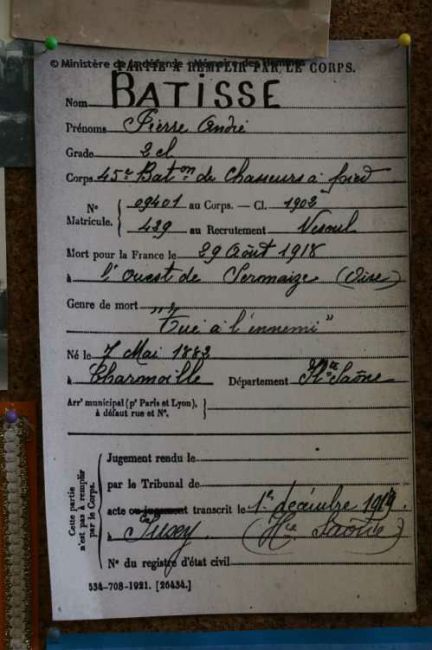 © Ministère de la défense - Mémoire des hommes
PARTIE À REMPLIR PAR LE CORPS.
Nom BATISSE
Prénoms Pierre André
Grade 2 cl
Corps 45e Baton de Chasseurs à pied
N° Matricule. { 09401 au Corps. — Cl. 1903
439 au Recrutement Vesoul
Mort pour la France le 29 Août 1918
à l'ouest de Sermaize (Oise)
Genre de mort
"Tué à l'ennemi"
Né le 7 Mai 1883
à Charmoille Département Hte Saône
Arrt municipal (pr Paris et Lyon),
à défaut rue et N°.
Cette partie
n'est pas à remplir
par le Corps.
Jugement rendu le
par le Tribunal de
acte ou jugement transcrit le 1er décembre 1919
à (Hte Saône)
N° du registre d'état civil
534-708-1921. [26434.]